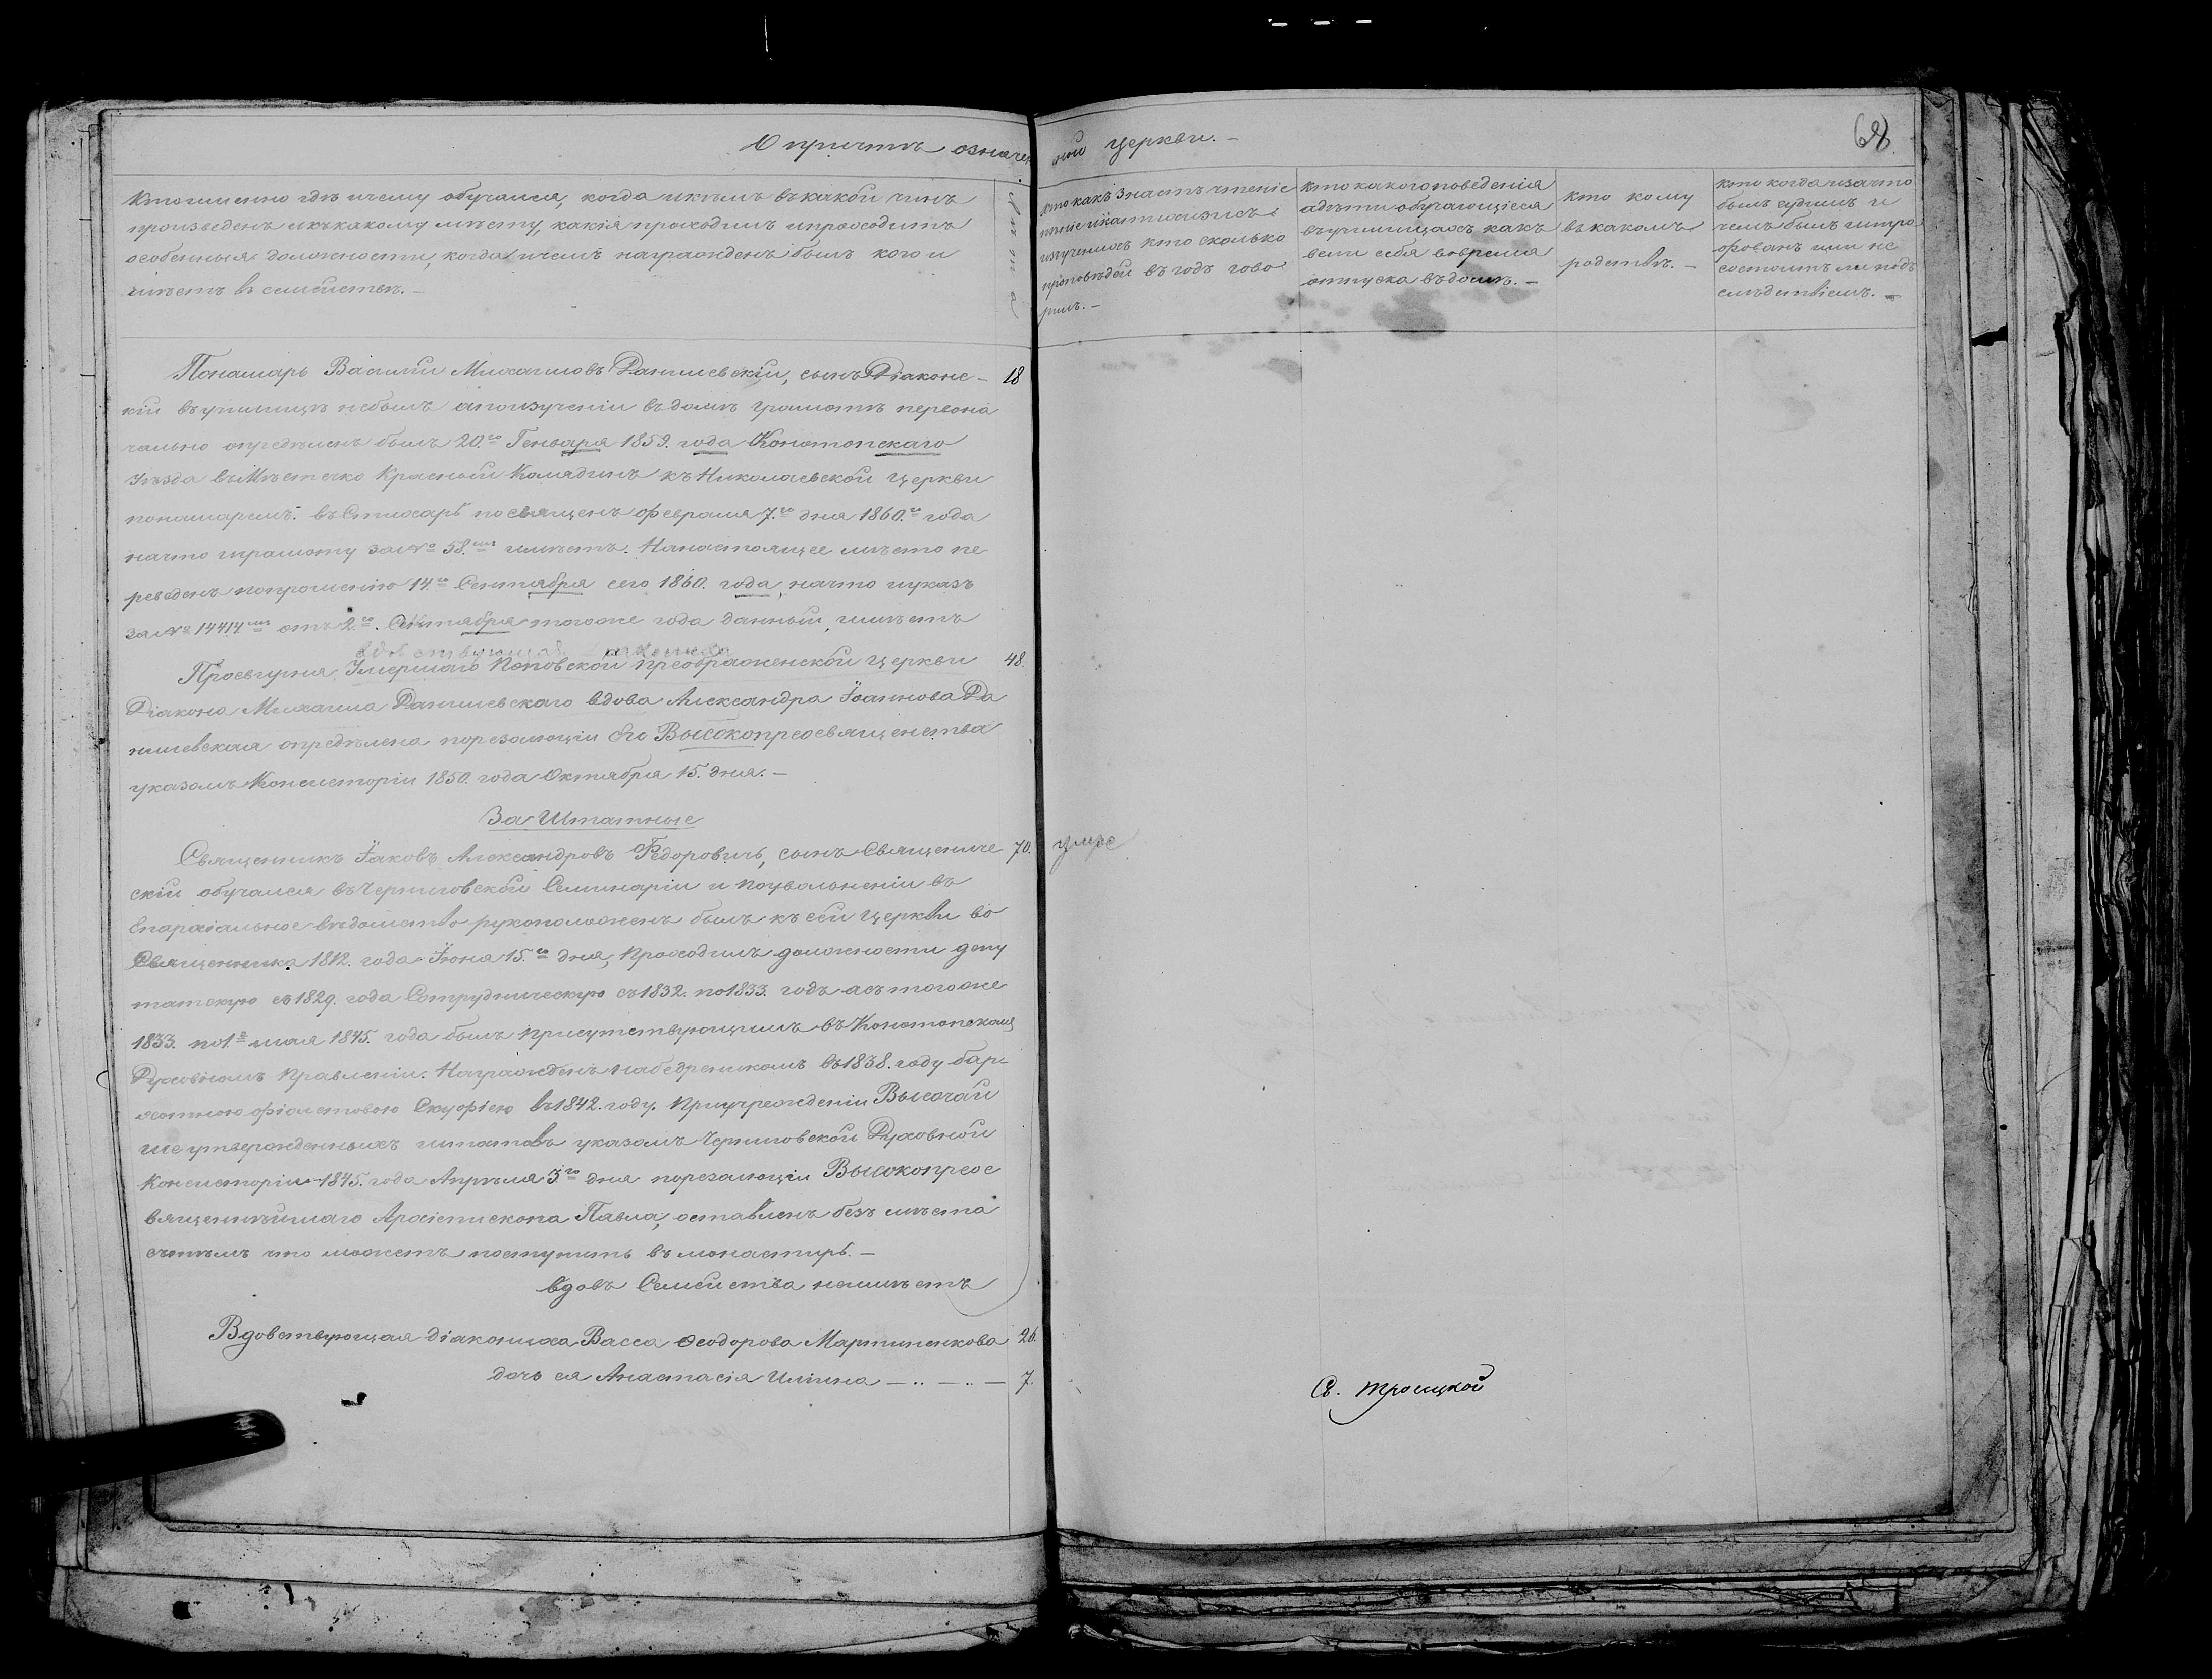 О причтѣ означен
ной церкви. –
68
Кто именно гдѣ и чему обучался, когда и кѣмъ въ какой чинъ
произведенъ и къ какому мѣсту, какія проходилъ и проходитъ
особенныя должности, когда и чемъ награжденъ былъ кого и
имѣетъ въ семействѣ. –
Лѣта
кто какъ знаетъ чтеніе
пѣніе и катихизисъ
изученіихъ кто сколько
проповѣдей въ годъ гово
рилъ. –
кто какого поведенія
а дѣти обучающіеся
въ училищахъ какъ
вели себя во время
отпуска въ домъ. –
кто кому
въ какомъ
родствѣ. –
кто когда и за что
былъ судимъ и
чемъ былъ штра
фованъ или не
состоитъ ли подъ
слѣдствіемъ. –
Понамарь Василій Михаиловъ Данилевскій, сынъ Діаконс– 18
кій въ училищѣ небылъ а по изученіи въ домѣ грамотѣ первона
чально опредѣленъ былъ 20.го Генваря 1859. года Конотопскаго
уѣзда въ Мѣстечко Красный Колядинъ къ Николаевской церкви
понамаремъ. въ Стихарь посвященъ февраля 7.го дня 1860.го года
на что грамоту за № 58.мъ имѣетъ. На настоящее мѣсто пе
реведенъ по прошенію 14.го Сентября сего 1860. года, на что и указъ
за № 14414.мъ отъ 2.го Октября того же года данный, имѣетъ
вдовствующая
Просвирня, Умершаго Поповской преображенской церкви 48.
Діакона Михаила Данилевскаго вдова Александра Іоаннова Да
нилевская опредѣлена по резолюціи Его Высокопреосвященства
указомъ Консисторіи 1850. года Октября 15. дня. –
За Штатные
Священникъ Іаковъ Александровъ Федоровичь, сынъ Священиче 70. умре
скій обучался въ Черниговской Семинаріи и по увольненіи въ
Епархіальное вѣдомство рукоположенъ былъ къ сей церкви во
Священника 1812. года Іюня 15.го дня, Проходилъ должности депу
татскую съ 1829. года Сотрудническую съ 1832. по 1833. годъ а съ того же
1833. по 1.е мая 1845. года былъ присутствующимъ въ Конотопскомъ
Духовномъ Правленіи. Награжденъ набедреникомъ въ 1838. году бар
хатною фіолетовою Скуфіею въ 1842. году. При учрежденіи Высочай
ше утвержденныхъ штатовъ указомъ Черниговской Духовной
Консисторіи 1845. года Апрѣля 3.го дня по резолюціи Высокопреос
вященнѣйшаго Архіепископа Павла, оставленъ безъ мѣста
съ тѣмъ что можетъ поступить въ монастирь. –
вдовъ Семейства неимѣетъ
Вдовствующая діакониха Васса Ѳеодорова Мартиненкова 26.
дочь ея Анастасія Иліина – .. – .. – 7.
Св. Троицкой